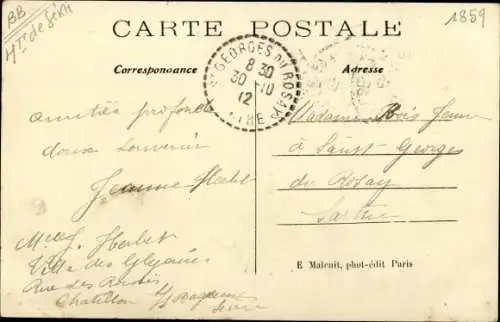 BB
1859
CARTE POSTALE
Correspondance
Adresse
ST GEORGES DU ROSAY
8 30
30 - 10
12
amitiés profonde
doux souvenir
Jeanne Herbet
Madame Bois Jeune
à Saint Georges
du Rosay
Sarthe
Melle J. Herbet
Villa des Glycines
Rue des
Chatillon s/s Bagneux
Seine
E. Malcuit, phot-édit Paris